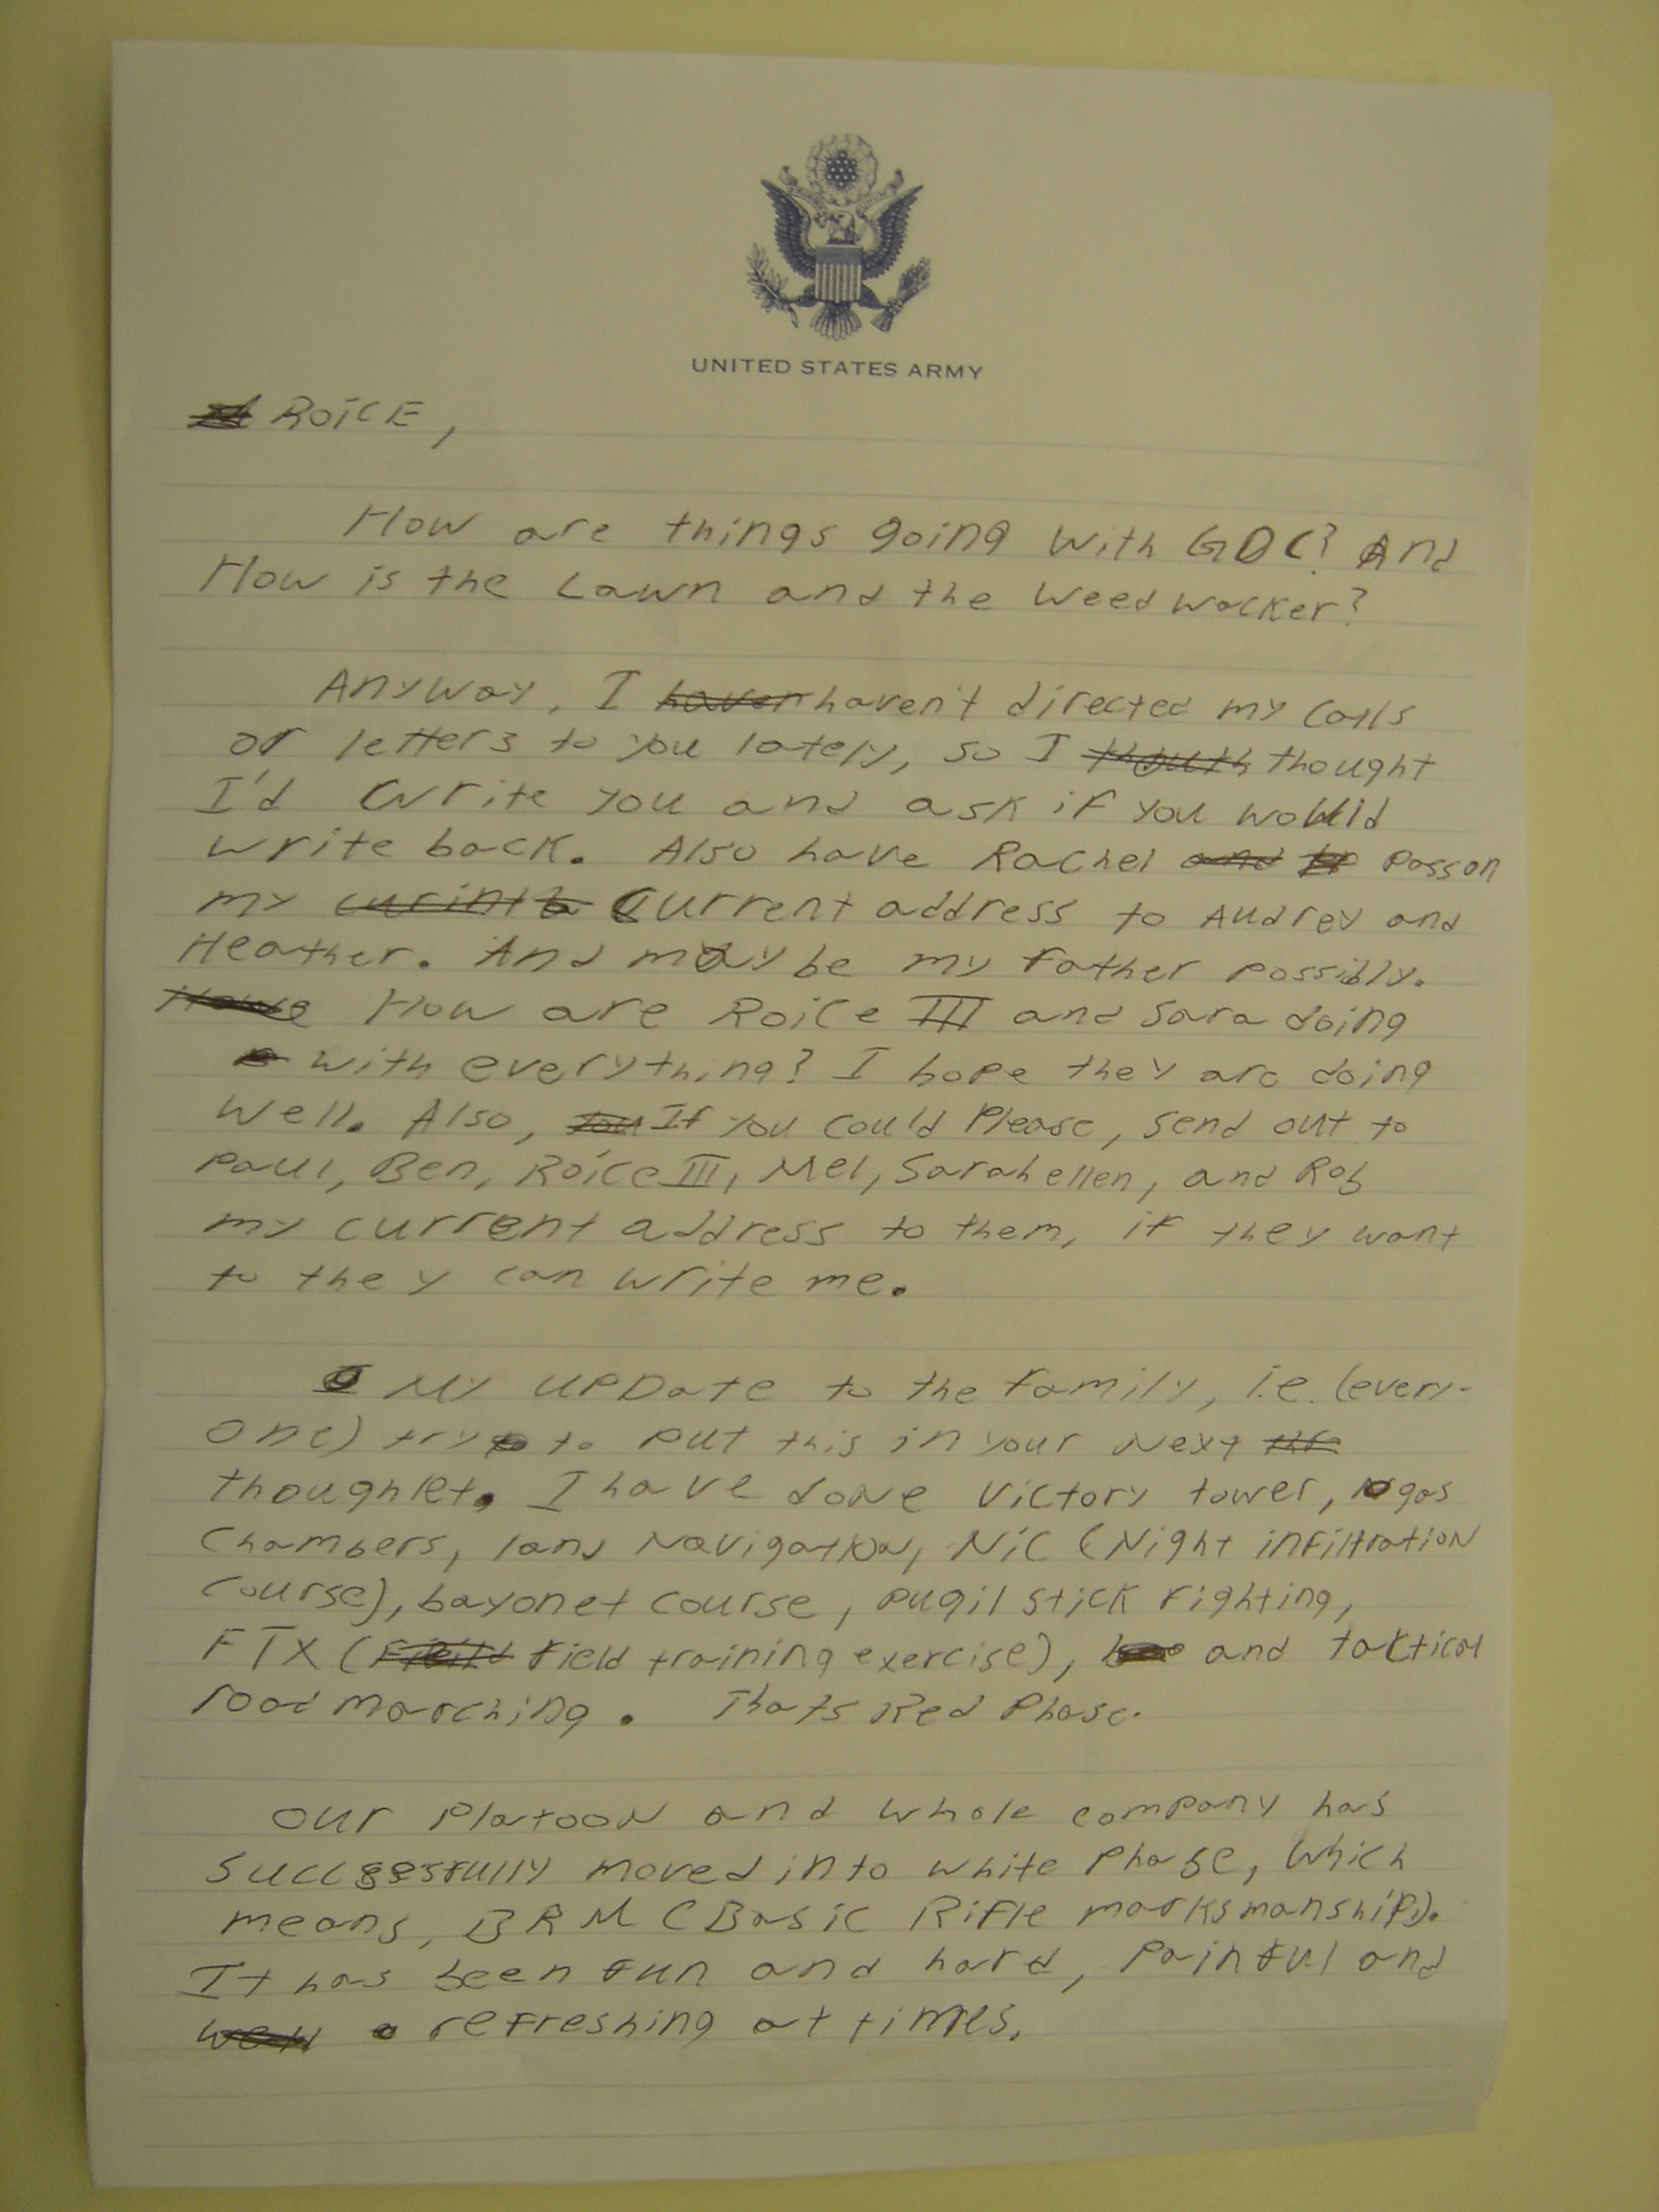 UNITED STATES ARMY
ROICE,
How are things going with GDC? And
How is the Lawn and the Weed wacker?
Anyway, I haven't directed my calls
or letters to you lately, so I thought
I'd write you and ask if you would
write back. Also have Rachel pass on
my current address to Audrey and
Heather. And maybe my father possibly.
How are Roice III and Sara doing
with everything? I hope they are doing
well. Also, If you could Please, send out to
Paul, Ben, Roice III, Mel, Sarahellen, and Rob
my current address to them, if they want
to they can write me.
My UPDate to the family, i.e. (every-
one) try to put this in your Next
thoughlet. I have done Victory tower, gas
Chambers, land Navigation, NIC (Night infiltration
course), bayonet course, pugil stick fighting,
FTX (field training exercise), and tactical
road marching. Thats Red Phase.
Our Platoon and whole company has
successfully moved into white Phase, which
means, BRM (Basic Rifle marksmanship).
It has been fun and hard, Painful and
refreshing at times.